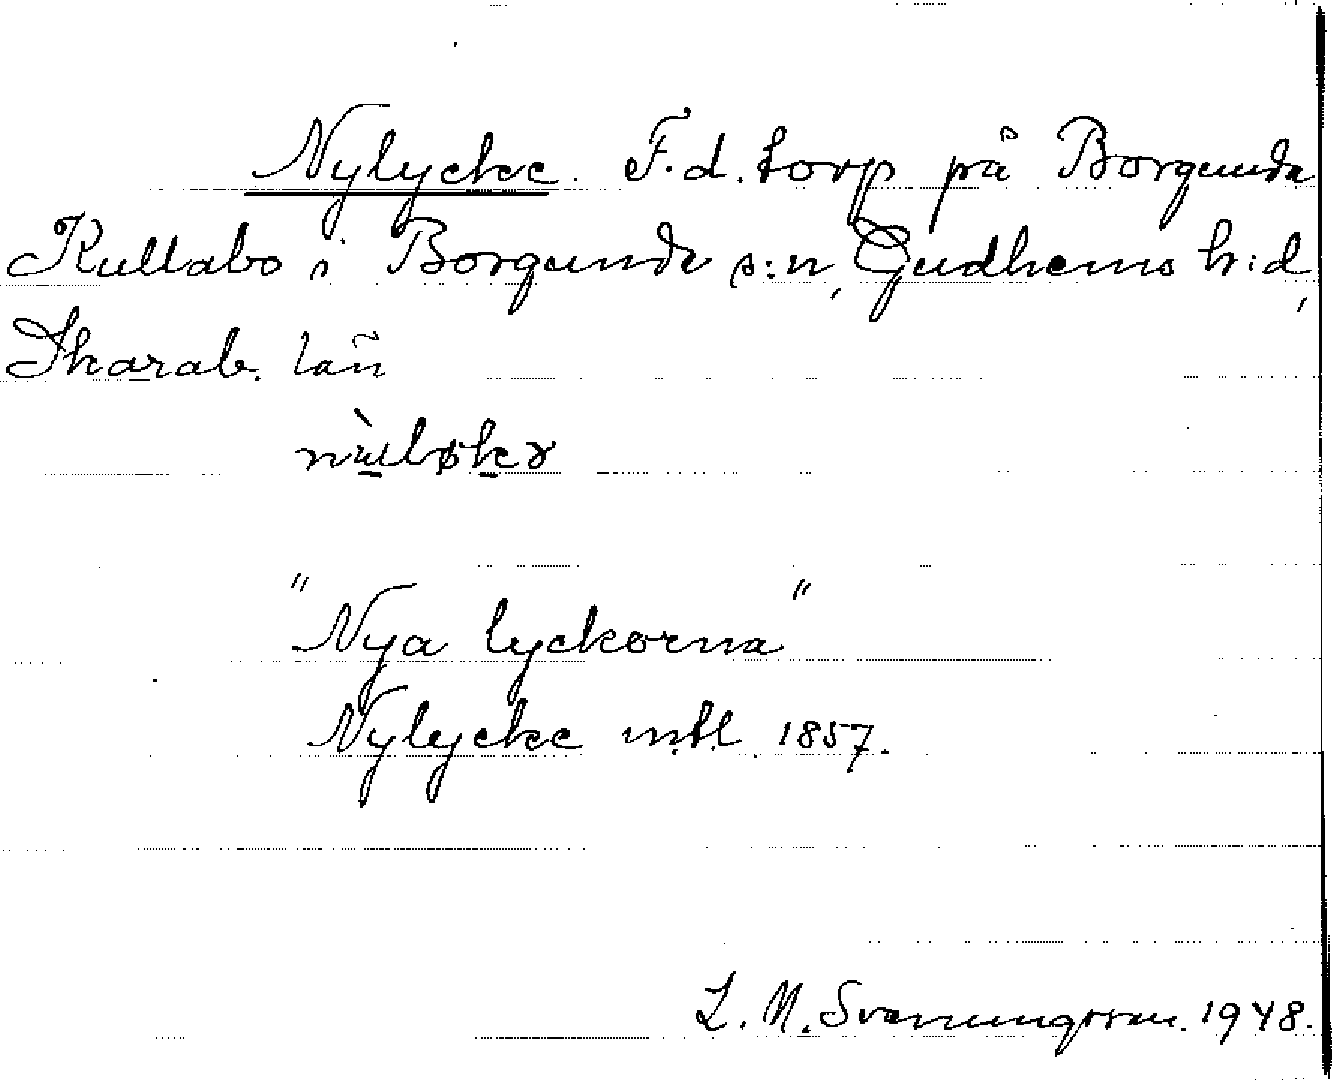 Nylycke. F.d. torp på Borgunda
Kullabo i Borgunda s:n, Gudhems h:d,
Skarab. län
"Nya lyckorna"
Nylycke mtl. 1857.
L. M. Svanungsson. 1948.